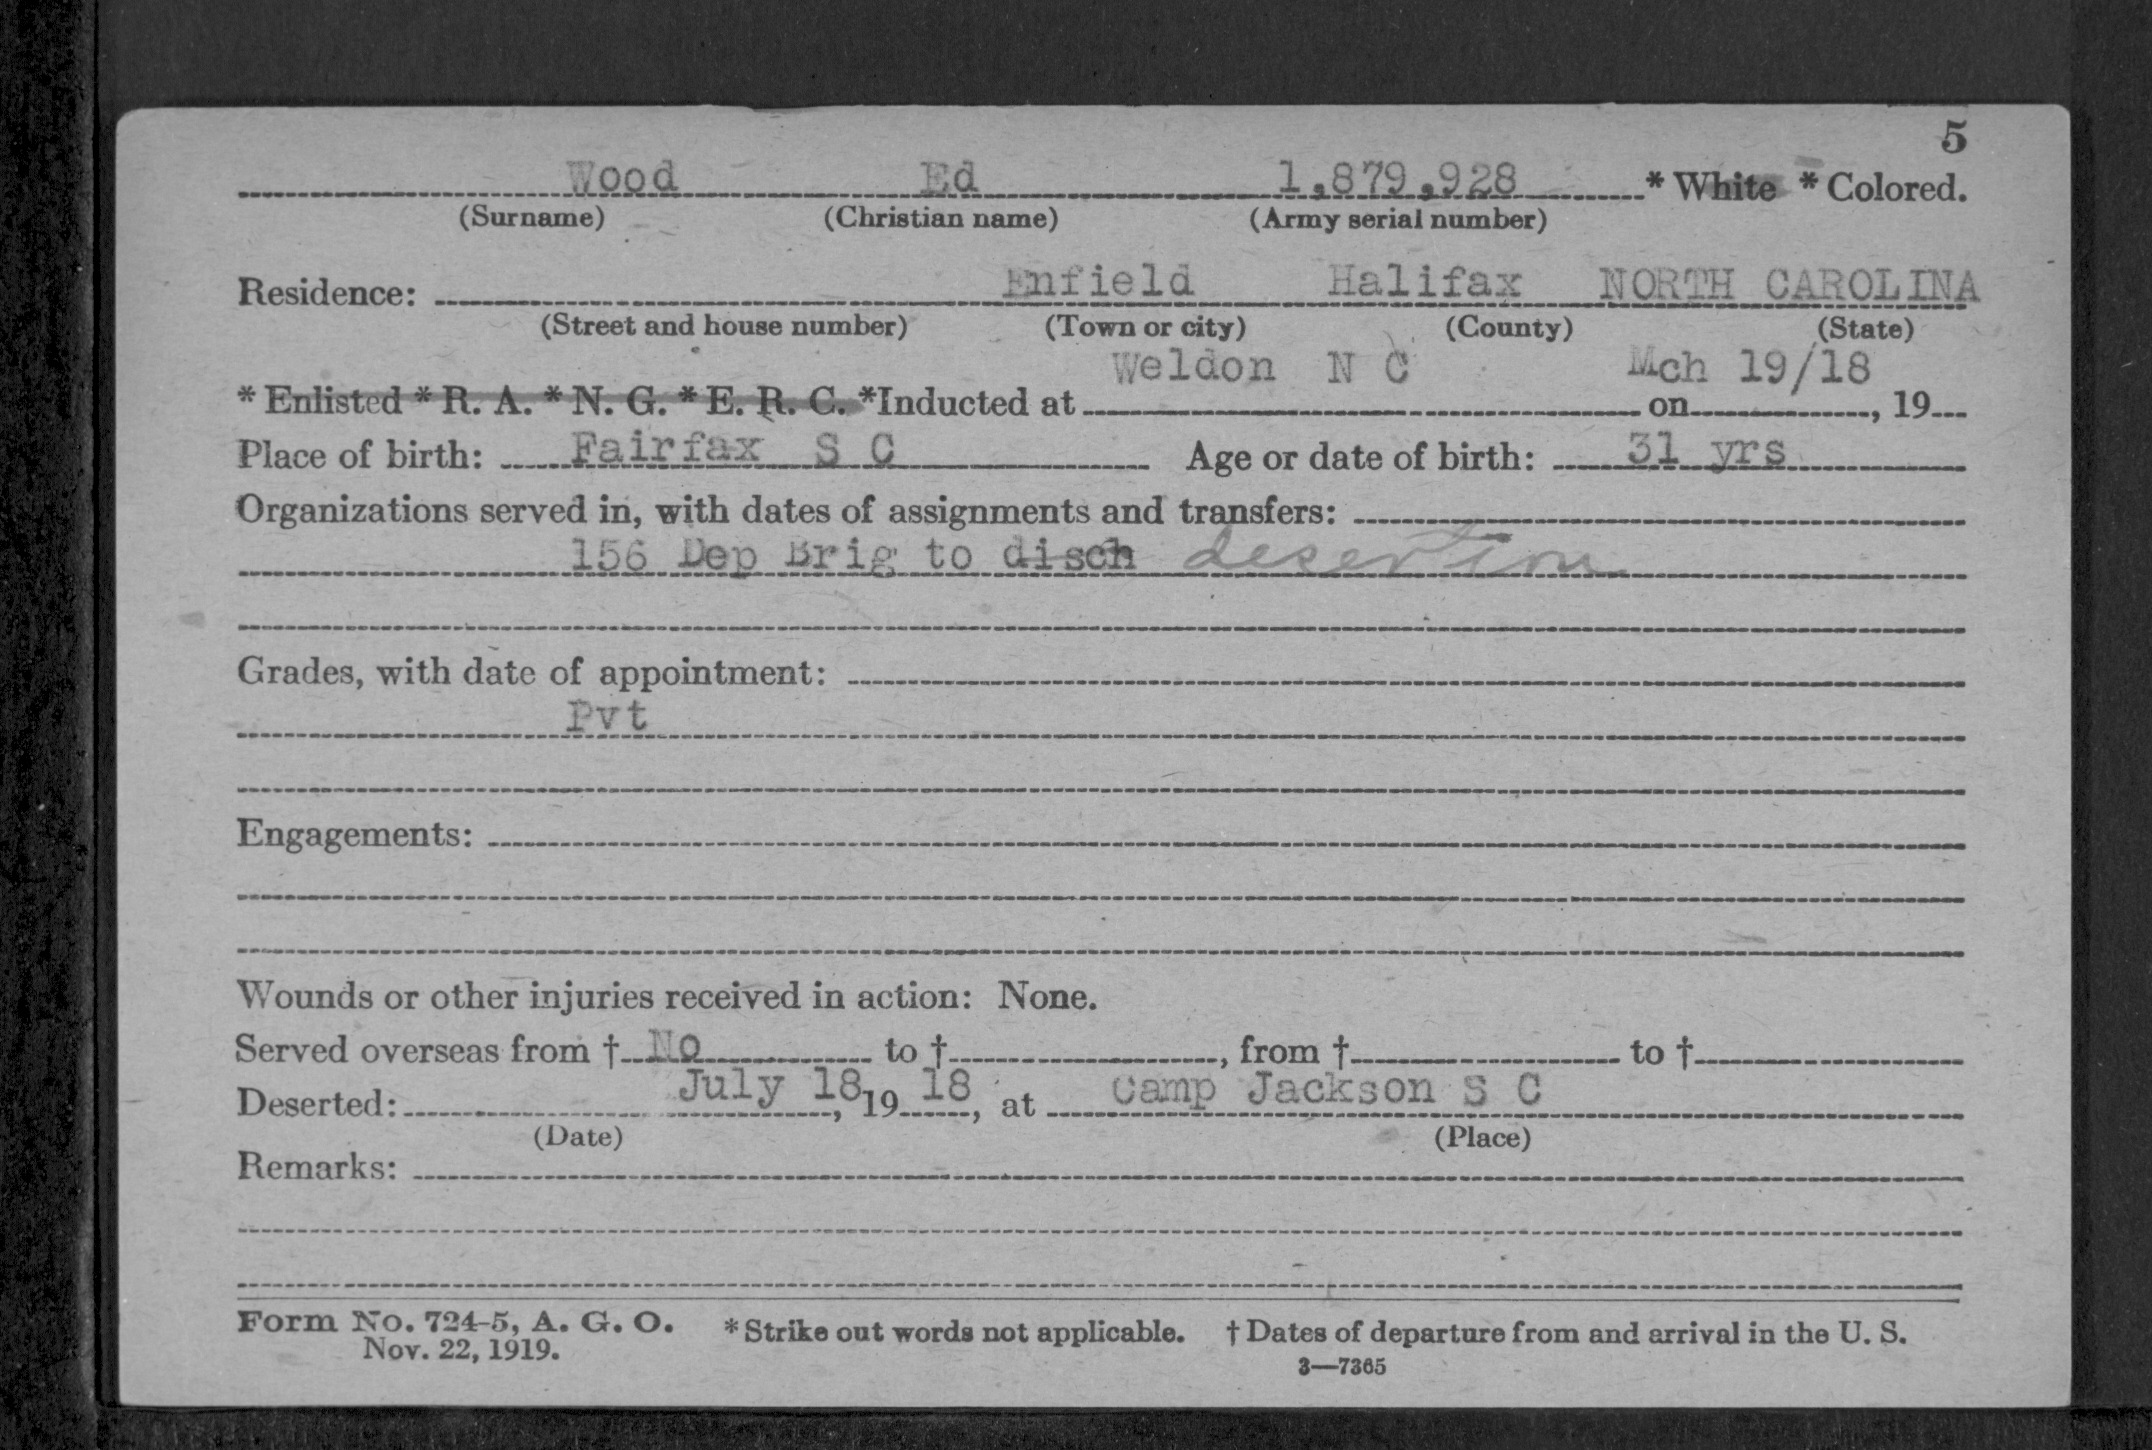 5
Wood Ed 1,879,928 * White * Colored.
(Surname) (Christian name) (Army serial number)
Residence: Enfield Halifax NORTH CAROLINA
(Street and house number) (Town or city) (County) (State)
Weldon N C Mch 19/18
* Enlisted * R. A. * N. G. * E. R. C. *Inducted at on , 19
Place of birth: Fairfax S C Age or date of birth: 31 yrs
Organizations served in, with dates of assignments and transfers:
156 Dep Brig to disch desertion
Grades, with date of appointment:
Pvt
Engagements:
Wounds or other injuries received in action: None.
Served overseas from † No to † , from † to †
Deserted: July 18, 19 18, at Camp Jackson S C
(Date) (Place)
Remarks:
Form No. 724-5, A. G. O. * Strike out words not applicable. † Dates of departure from and arrival in the U. S.
Nov. 22, 1919. 3—7365